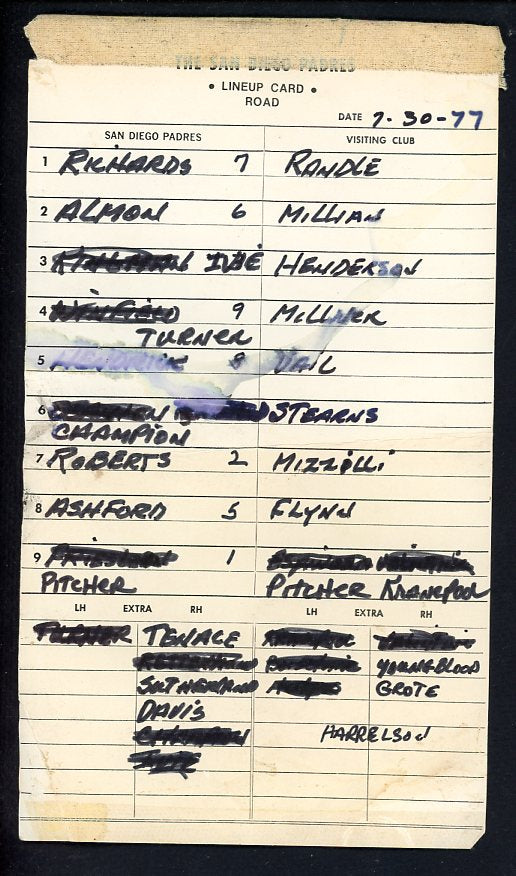 THE SAN DIEGO PADRES
• LINEUP CARD •
ROAD
DATE 7-30-77
SAN DIEGO PADRES VISITING CLUB
1 RICHARDS 7 RANDLE
2 ALMON 6 MILLIAN
3 KINGMAN IVIE HENDERSON
4 WINFIELD 9 MILLNER
TURNER
5 8 VAIL
6 STEARNS
CHAMPION
7 ROBERTS 2 MIZZILLI
8 ASHFORD 5 FLYNN
9 1
PITCHER PITCHER KRANEPOOL
LH EXTRA RH LH EXTRA RH
TURNER TENACE
YOUNGBLOOD
SUTHERLAND GROTE
DAVIS
HARRELSON
CHAMPION